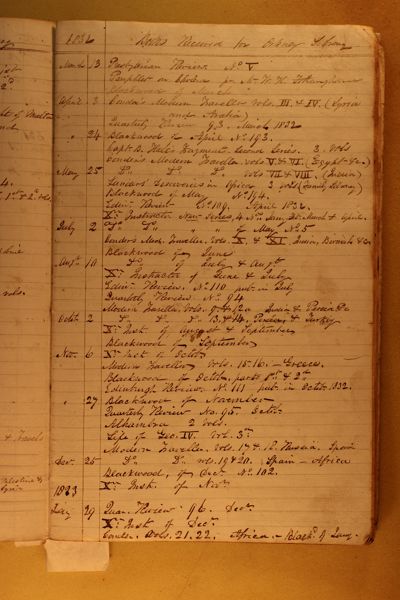 1832 Books Received for Orkney Library
March 13 Presbyterian Review No. V
Pamphlet on Cholera per Mr W. H.
Blackwood of March
April 3 Conder's Modern Traveller vols. III & IV. (Syria
and Arabia)
Quarterly Review 93. March 1832
" 24 Blackwood of April No. 193.
Capt. B. Hall's Fragments Second Series. 3 vols
Conder's Modern Traveller vols V & VI. (Egypt &c.)
May 25 Do. Do. Do. vols VII & VIII. (Russia)
Landers' Discoveries in Africa 3 vols (Family Library)
Blackwood of May No. 194.
Edinr. Review No. 109. April 1832.
Xn. Instructor New Series, 4 Nos. Jan. Feb. March & April.
July 2 Do. Do. " " of May No. 5
Conders Mod. Traveller. Vols X & XI
Blackwood of June
Augt. 10 Do. of July & Augt.
Xn. Instructor of June & July
Edinr. Review No. 110 pub. in July
Quarterly Review No. 94
Modern Traveller Vols. 9 & 12 India & Persia &c
Octr. 2 Do. Do. Do. 13 & 14. Persia & Turkey
Xn. Inst. of August & September
Blackwood of September
Nov. 6 Xn. Inst. of Octr.
Modern Traveller Vols. 15. 16. - Greece.
Blackwood of Octob. parts 1st. & 2d.
Edinburgh Review No. 111 pub. in Octob. 1832.
" 27 Blackwood of November
Quarterly Review No. 95 Octr.
Alhambra 2 vols.
Life of Geo. IV. Vol. 3d.
Modern Traveller. Vols. 17 & 18. Russia. Spain
Decr. 25 Do. Do. vols. 19 & 20. Spain - Africa
Blackwood, of Decr. No. 102.
1833 Xn. Instr. of Novr.
Jany 29 Quar. Review 96. Decr.
Xn. Inst of Decr.
Conder. Vols. 21. 22. Africa. - Blackd. of Jany.
vols.
& Travels
Palestine &